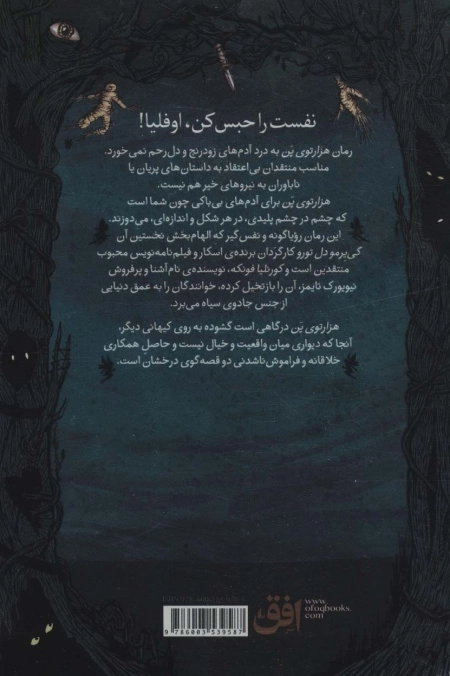 نفست را حبس کن، اوفلیا!
رمان هزارتوی پَن به درد آدم‌های زودرنج و دل‌رحم نمی‌خورد.
مناسب منتقدان بی‌اعتقاد به داستان‌های پریان یا
ناباوران به نیروهای خیر هم نیست.
هزارتوی پَن برای آدم‌های بی‌باکی چون شما است
که چشم در چشم پلیدی، در هر شکل و اندازه‌ای، می‌دوزند.
این رمان رؤیاگونه و نفس‌گیر که الهام‌بخش نخستین آن
گی‌یرمو دل تورو کارگردان برنده‌ی اسکار و فیلم‌نامه‌نویس محبوب
منتقدین است و کورنلیا فونکه، نویسنده‌ی نام‌آشنا و پرفروش
نیویورک تایمز، آن را بازتخیل کرده، خوانندگان را به عمق دنیایی
از جنس جادوی سیاه می‌برد.
هزارتوی پَن درگاهی است گشوده به روی کیهانی دیگر،
آنجا که دیواری میان واقعیت و خیال نیست و حاصل همکاری
خلاقانه و فراموش‌ناشدنی دو قصه‌گوی درخشان است.
9 786003 539587
افق
www.
ofoqbooks.
com